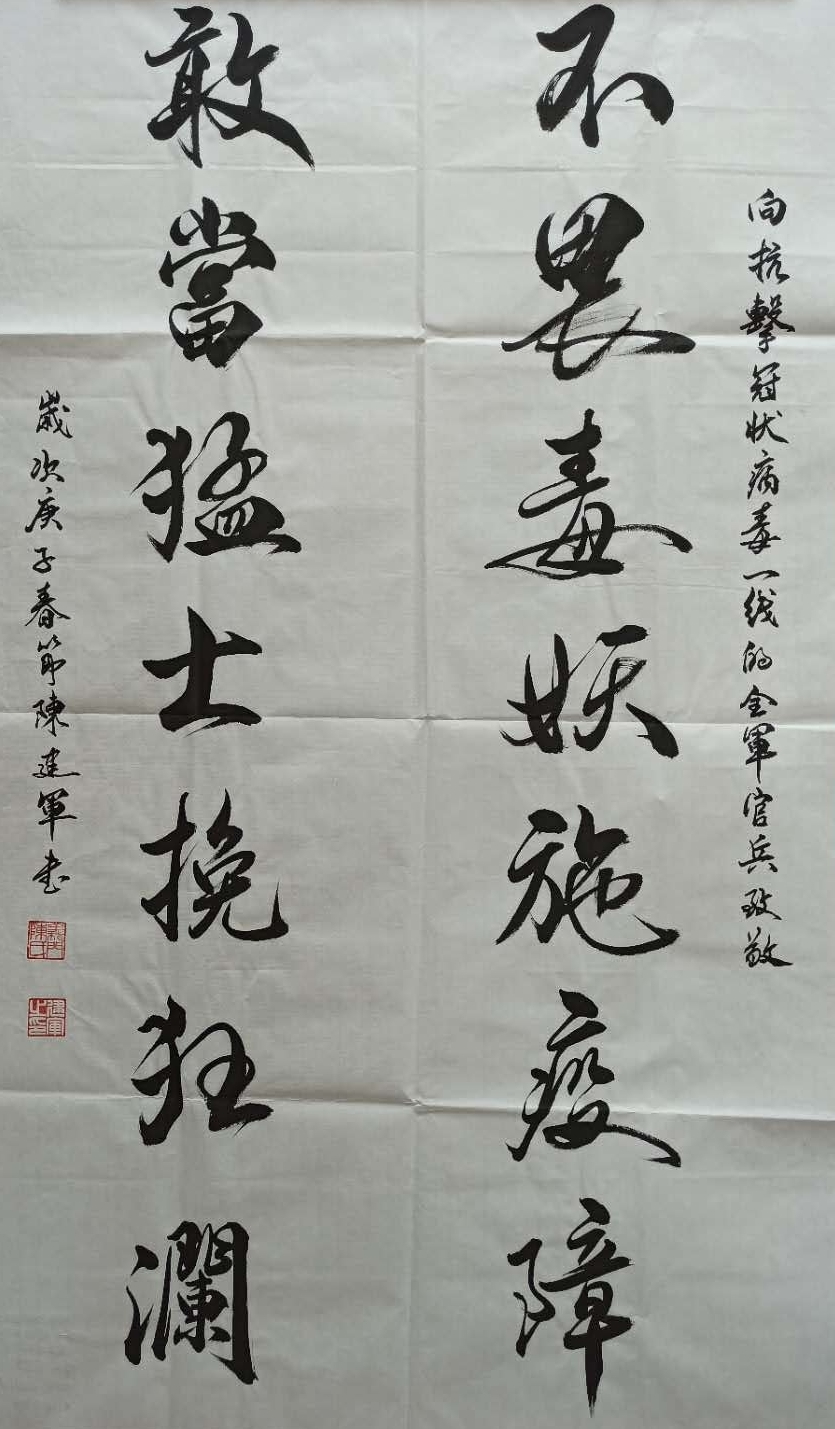 向抗擊冠状病毒一线的全軍官兵致敬
不畏毒妖施疫障
敢當猛士挽狂瀾
歲次庚子春節陳建軍书
建軍之印